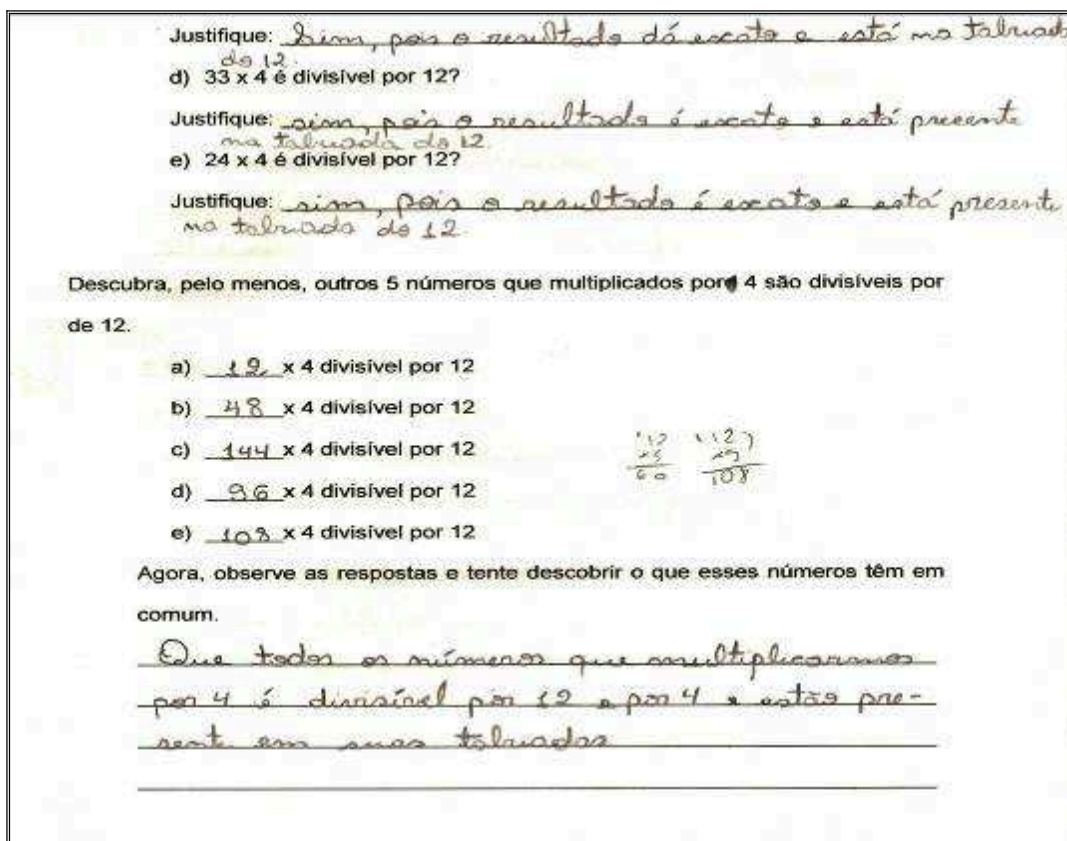 Justifique: Sim, pois o resultado dá exato e está na tabuada
do 12.
d) 33 x 4 é divisível por 12?
Justifique: sim, pois o resultado é exato e está presente
na tabuada do 12
e) 24 x 4 é divisível por 12?
Justifique: sim, pois o resultado é exato e está presente
na tabuada do 12.
Descubra, pelo menos, outros 5 números que multiplicados por 4 são divisíveis por
de 12.
a) 12 x 4 divisível por 12
b) 48 x 4 divisível por 12
c) 144 x 4 divisível por 12
d) 96 x 4 divisível por 12
e) 108 x 4 divisível por 12
12 12
x5 x9
60 108
Agora, observe as respostas e tente descobrir o que esses números têm em
comum.
Que todos os números que multiplicarmos
por 4 é divisível por 12 e por 4 e estão pre-
sent em suas tabuadas